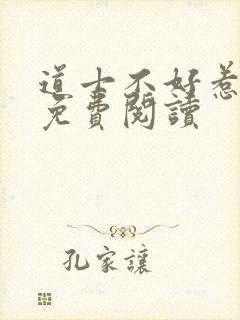 道士不好惹
免費閱讀
孔家讓